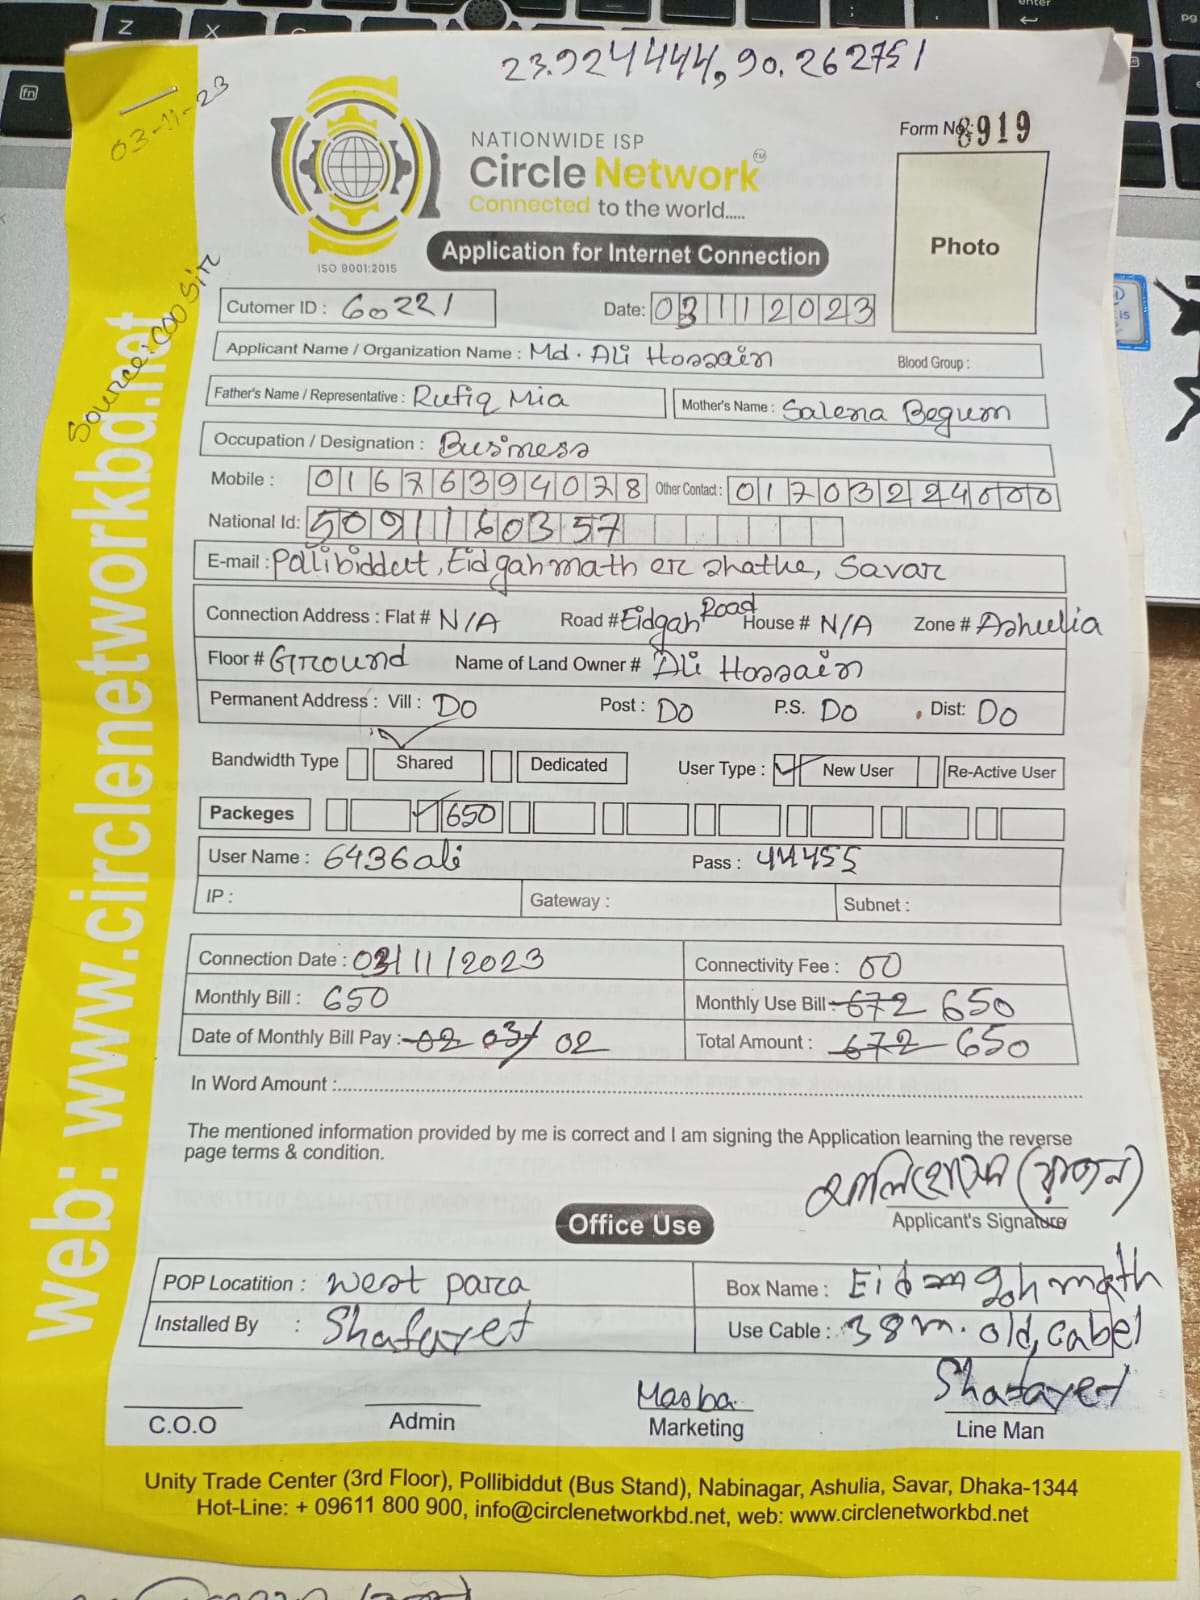 23.924444, 90.262751
03-11-23
Form No: 8919
NATIONWIDE ISP
Circle Network TM
Connected to the world.....
ISO 9001:2015
Application for Internet Connection
Photo
Source: COO Sir
web: www.circlenetworkbd.net
Cutomer ID : 60221 Date: 03112023
Applicant Name / Organization Name : Md. Ali Hossain Blood Group :
Father's Name / Representative : Rufiq Mia Mother's Name : Salena Begum
Occupation / Designation : Business
Mobile : 01676394078 Other Contact : 01703224000
National Id: 5091160357
E-mail : Pollibiddut, Eidgahmath er shathe, Savar
Connection Address : Flat # N/A Road # Eidgah Road House # N/A Zone # Ashulia
Floor # Ground Name of Land Owner # Ali Hossain
Permanent Address : Vill : Do Post : Do P.S. Do Dist: Do
Bandwidth Type Shared Dedicated User Type : New User Re-Active User
Packeges 650
User Name : 6436ali Pass : 44455
IP : Gateway : Subnet :
Connection Date : 03/11/2023 Connectivity Fee : 00
Monthly Bill : 650 Monthly Use Bill : 672 650
Date of Monthly Bill Pay : 02 03/ 02 Total Amount : 672 650
In Word Amount :
The mentioned information provided by me is correct and I am signing the Application learning the reverse
page terms & condition.
আলি হোসেন (রাজন)
Applicant's Signature
Office Use
POP Locatition : West para Box Name : Eid gohmath
Installed By : Shafayet Use Cable : 38m. old, cabel
Masba Shafayet
C.O.O Admin Marketing Line Man
Unity Trade Center (3rd Floor), Pollibiddut (Bus Stand), Nabinagar, Ashulia, Savar, Dhaka-1344
Hot-Line: + 09611 800 900, info@circlenetworkbd.net, web: www.circlenetworkbd.net